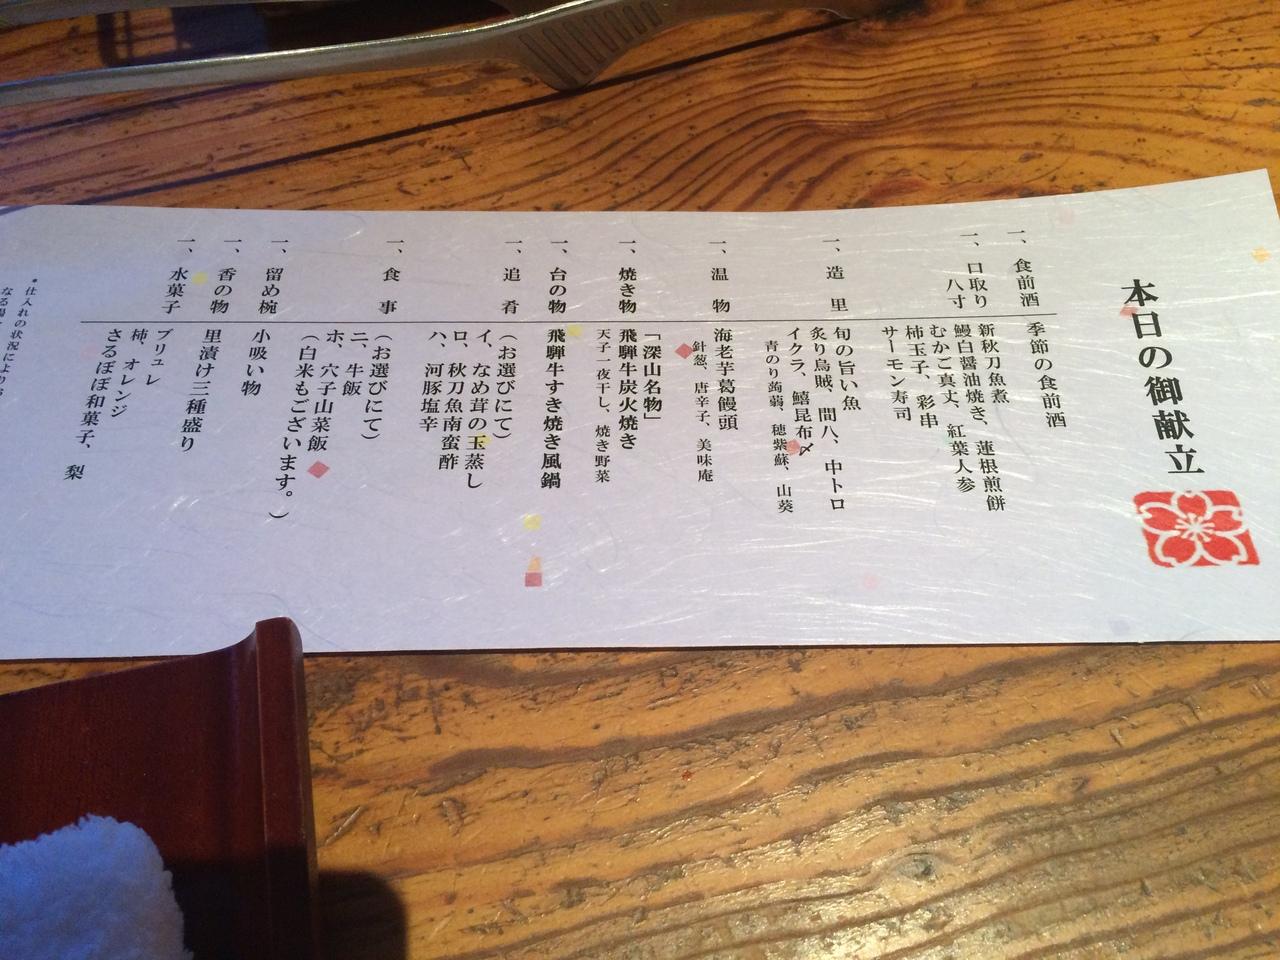 本日の御献立
一、食前酒 季節の食前酒
一、口取り 新秋刀魚煮
八寸 鰻白醤油焼き、蓮根煎餅
むかご真丈、紅葉人参
柿玉子、彩串
サーモン寿司
一、造里 旬の旨い魚
炙り烏賊、間八、中トロ
イクラ、鱚昆布〆
青のり蒟蒻、穂紫蘇、山葵
一、温物 海老芋葛饅頭
針葱、唐辛子、美味庵
一、焼き物 「深山名物」
飛騨牛炭火焼き
天子一夜干し、焼き野菜
一、台の物 飛騨牛すき焼き風鍋
一、追肴 (お選びにて)
イ、なめ茸の玉蒸し
ロ、秋刀魚南蛮酢
ハ、河豚塩辛
一、食事 (お選びにて)
ニ、牛飯
ホ、穴子山菜飯
(白米もございます。)
一、留め椀 小吸い物
一、香の物 里漬け三種盛り
一、水菓子 ブリュレ
柿、オレンジ
さるぼぼ和菓子、梨
*仕入れの状況により
なる場